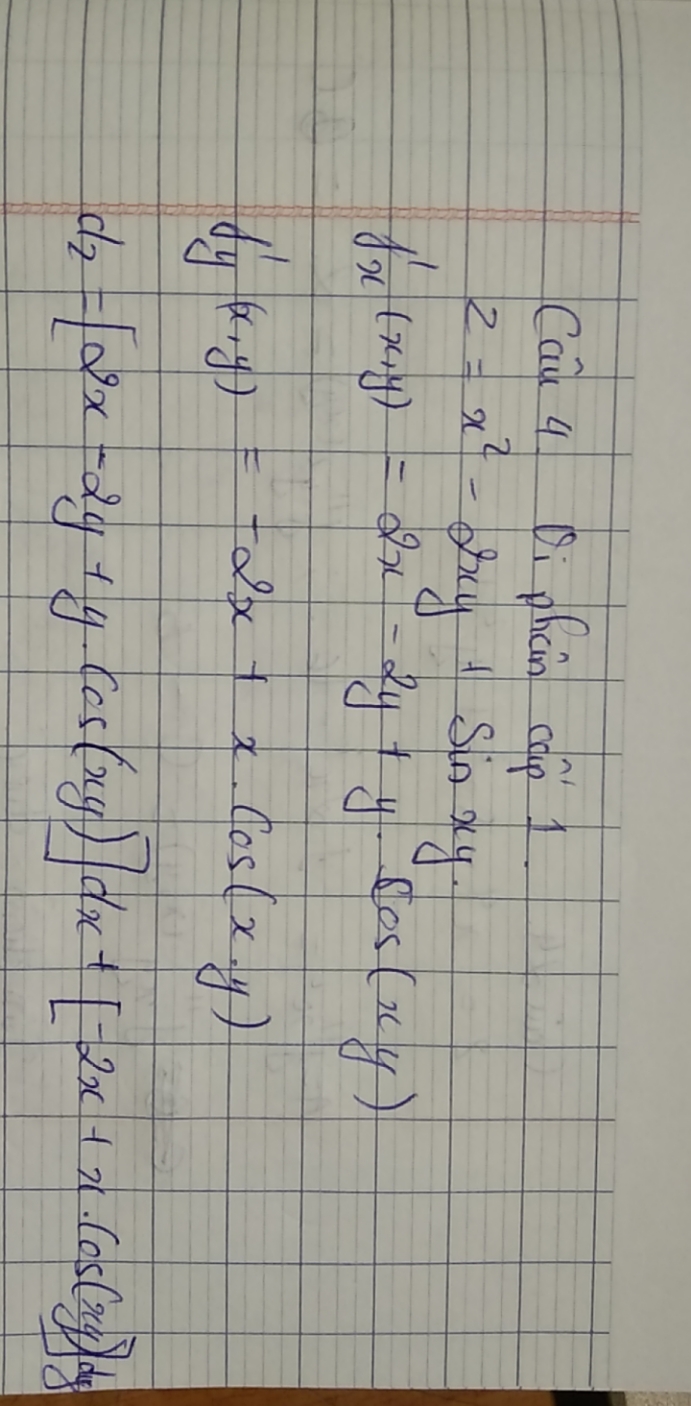 Câu 4 Vi phân cấp 1.
z = x² - 2xy + Sin xy.
f'x (x,y) = 2x - 2y + y. Cos(xy)
f'y (x,y) = -2x + x. Cos(x.y)
dz = [2x - 2y + y. Cos(xy)] dx + [-2x + x. Cos(xy)] dy